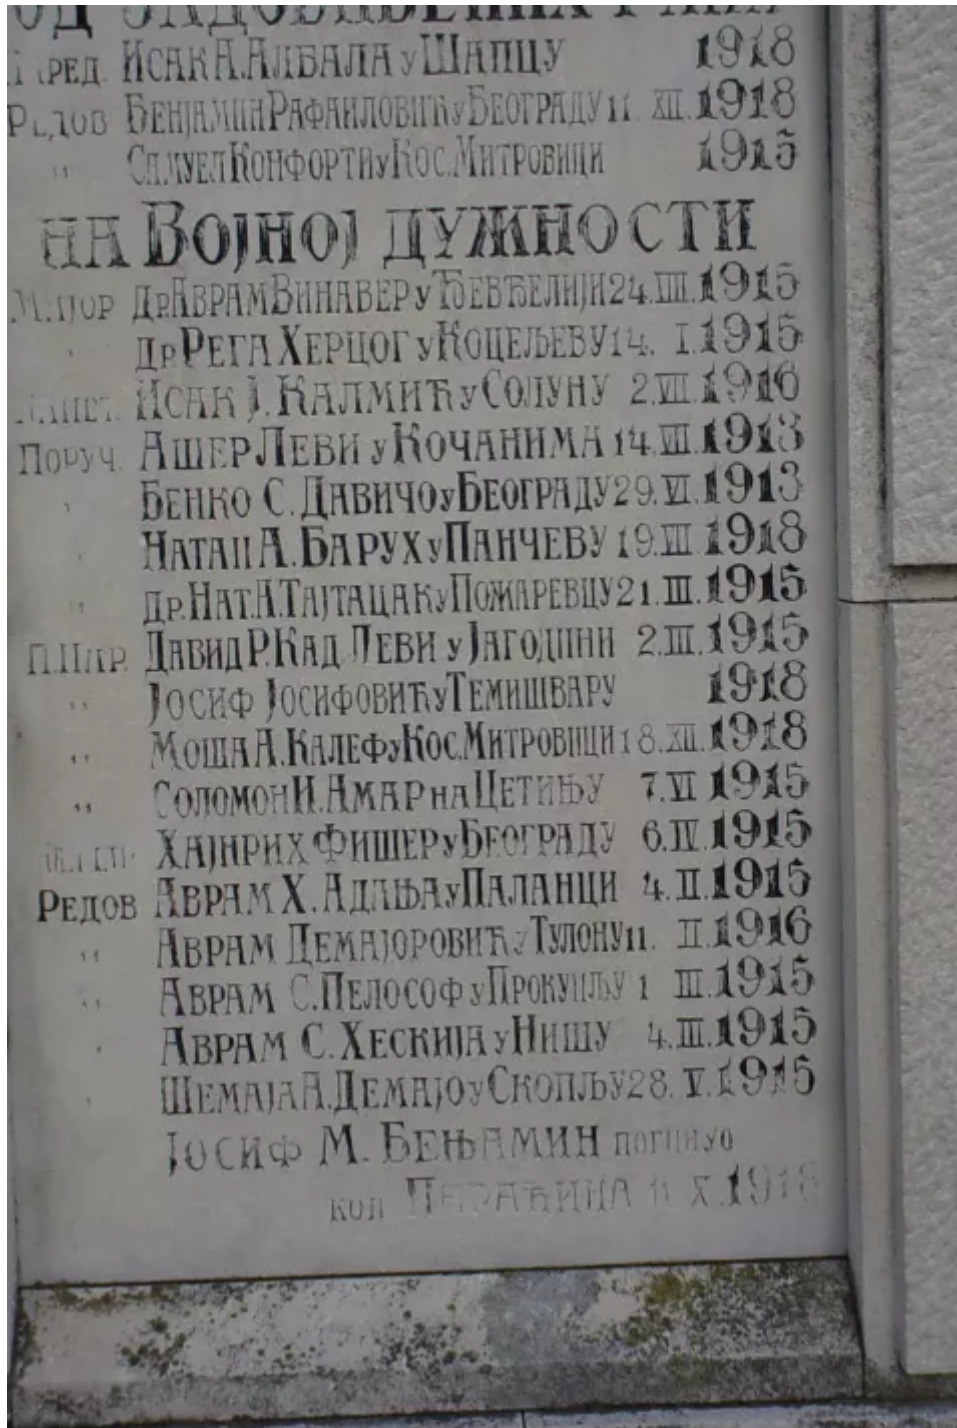 ОД ЗАДОБИЈЕНИХ РАНА
ИСАК А. АЛБАЛА У ШАПЦУ 1918
РЕДОВ БЕНЈАМИН РАФАИЛОВИЋ У БЕОГРАДУ 11. XII. 1918
" САМУЕЛ КОНФОРТИ У КОС. МИТРОВИЦИ 1915
НА ВОЈНОЈ ДУЖНОСТИ
МАЈОР ДР. АВРАМ ВИНАВЕР У ЂЕВЂЕЛИЈИ 24. III. 1915
" ДР РЕГА ХЕРЦОГ У КОЦЕЉЕВУ 14. I. 1915
ИСАК Ј. КАЛМИЋ У СОЛУНУ 2. VII. 1916
ПОРУЧ. АШЕР ЛЕВИ У КОЧАНИМА 14. VII. 1913
" БЕНКО С. ДАВИЧО У БЕОГРАДУ 29. VI. 1913
" НАТАН А. БАРУХ У ПАНЧЕВУ 19. XII. 1918
" ДР. НАТ. А. ТАЈТАЦАК У ПОЖАРЕВЦУ 21. III. 1915
П. НАР. ДАВИД Р. КАД. ЛЕВИ У ЈАГОДИНИ 2. III. 1915
" ЈОСИФ ЈОСИФОВИЋ У ТЕМИШВАРУ 1918
" МОША А. КАЛЕФ У КОС. МИТРОВИЦИ 18. XII. 1918
" СОЛОМОН И. АМАР НА ЦЕТИЊУ 7. VI 1915
ХАЈНРИХ ФИШЕР У БЕОГРАДУ 6. IV. 1915
РЕДОВ АВРАМ Х. АДАЊА У ПАЛАНЦИ 4. II. 1915
" АВРАМ ДЕМАЈОРОВИЋ У ТУЛОНУ 11. II. 1916
" АВРАМ С. ПЕЛОСОФ У ПРОКУПЉУ 1 III. 1915
" АВРАМ С. ХЕСКИЈА У НИШУ 4. III. 1915
" ШЕМАЈА А. ДЕМАЈО У СКОПЉУ 28. V. 1915
ЈОСИФ М. БЕЊАМИН ПОГИНУО
КОД ПАРАЋИНА 11 X. 1918